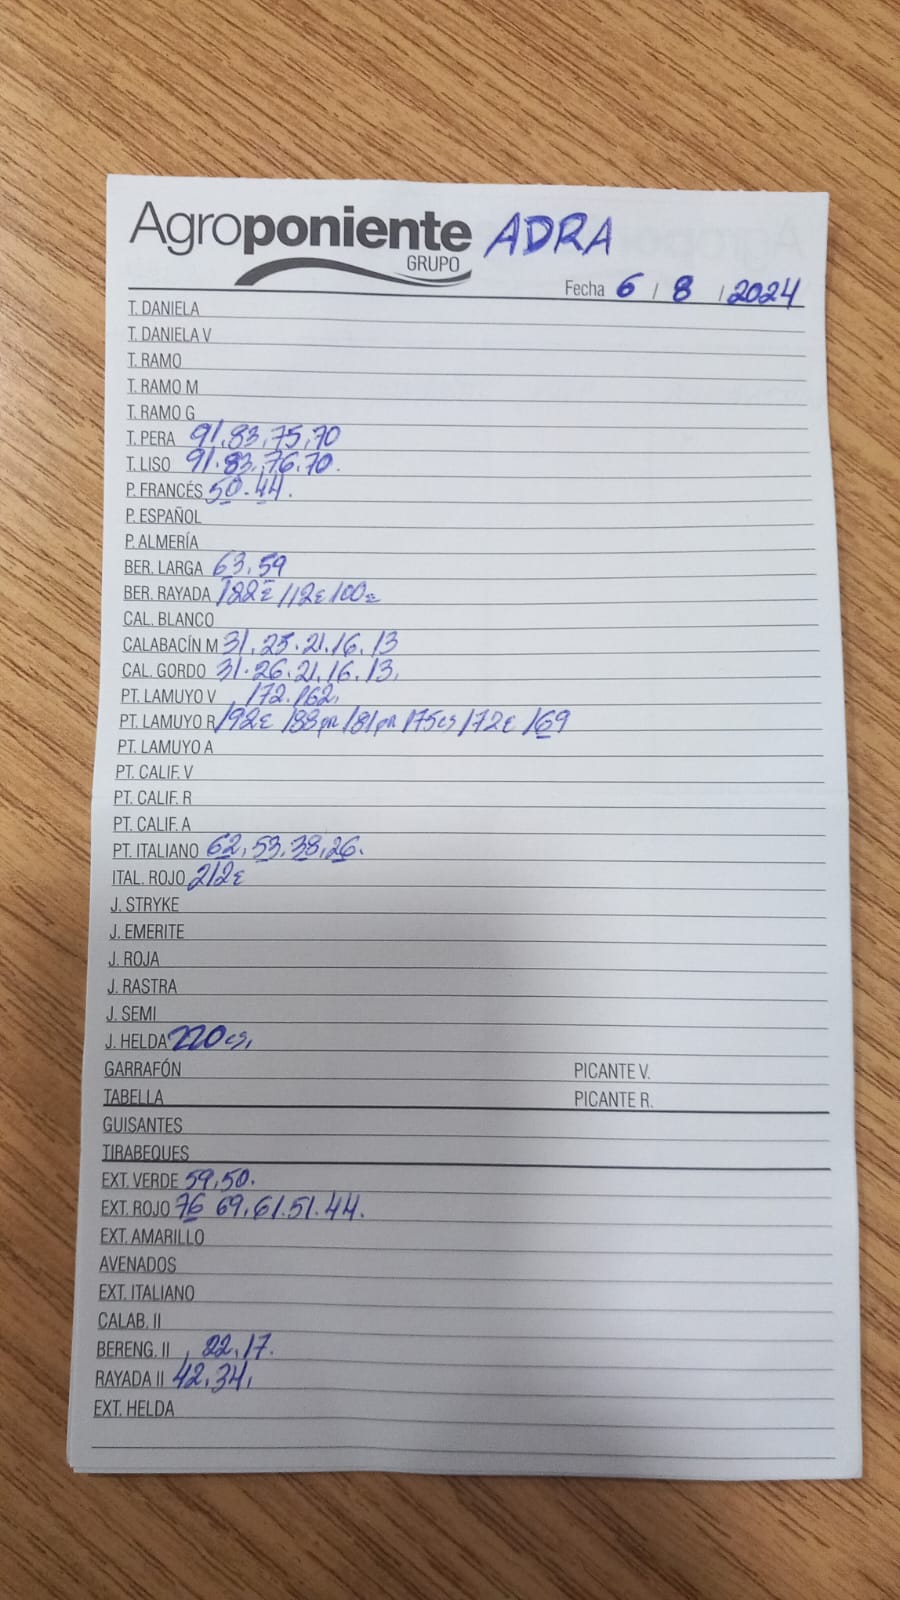 Agroponiente ADRA
GRUPO
Fecha 6 / 8 / 2024
T. DANIELA
T. DANIELA V
T. RAMO
T. RAMO M
T. RAMO G
T. PERA 91.83,75,70
T. LISO 91.83.76.70.
P. FRANCÉS 50.44.
P. ESPAÑOL
P. ALMERÍA
BER. LARGA 63.59
BER. RAYADA 122ε 112ε 100ε
CAL. BLANCO
CALABACÍN M 31.25.21.16.13
CAL. GORDO 31.26.21.16.13.
PT. LAMUYO V 172.162.
PT. LAMUYO R 192ε 188gr 181gr 175cs 172ε 169
PT. LAMUYO A
PT. CALIF. V
PT. CALIF. R
PT. CALIF. A
PT. ITALIANO 62.53.38.26.
ITAL. ROJO 212ε
J. STRYKE
J. EMERITE
J. ROJA
J. RASTRA
J. SEMI
J. HELDA 220cs,
GARRAFÓN PICANTE V.
TABELLA PICANTE R.
GUISANTES
TIRABEQUES
EXT. VERDE 59,50.
EXT. ROJO 76 69.61.51.44.
EXT. AMARILLO
AVENADOS
EXT. ITALIANO
CALAB. II
BERENG. II 22.17.
RAYADA II 42.34,
EXT. HELDA